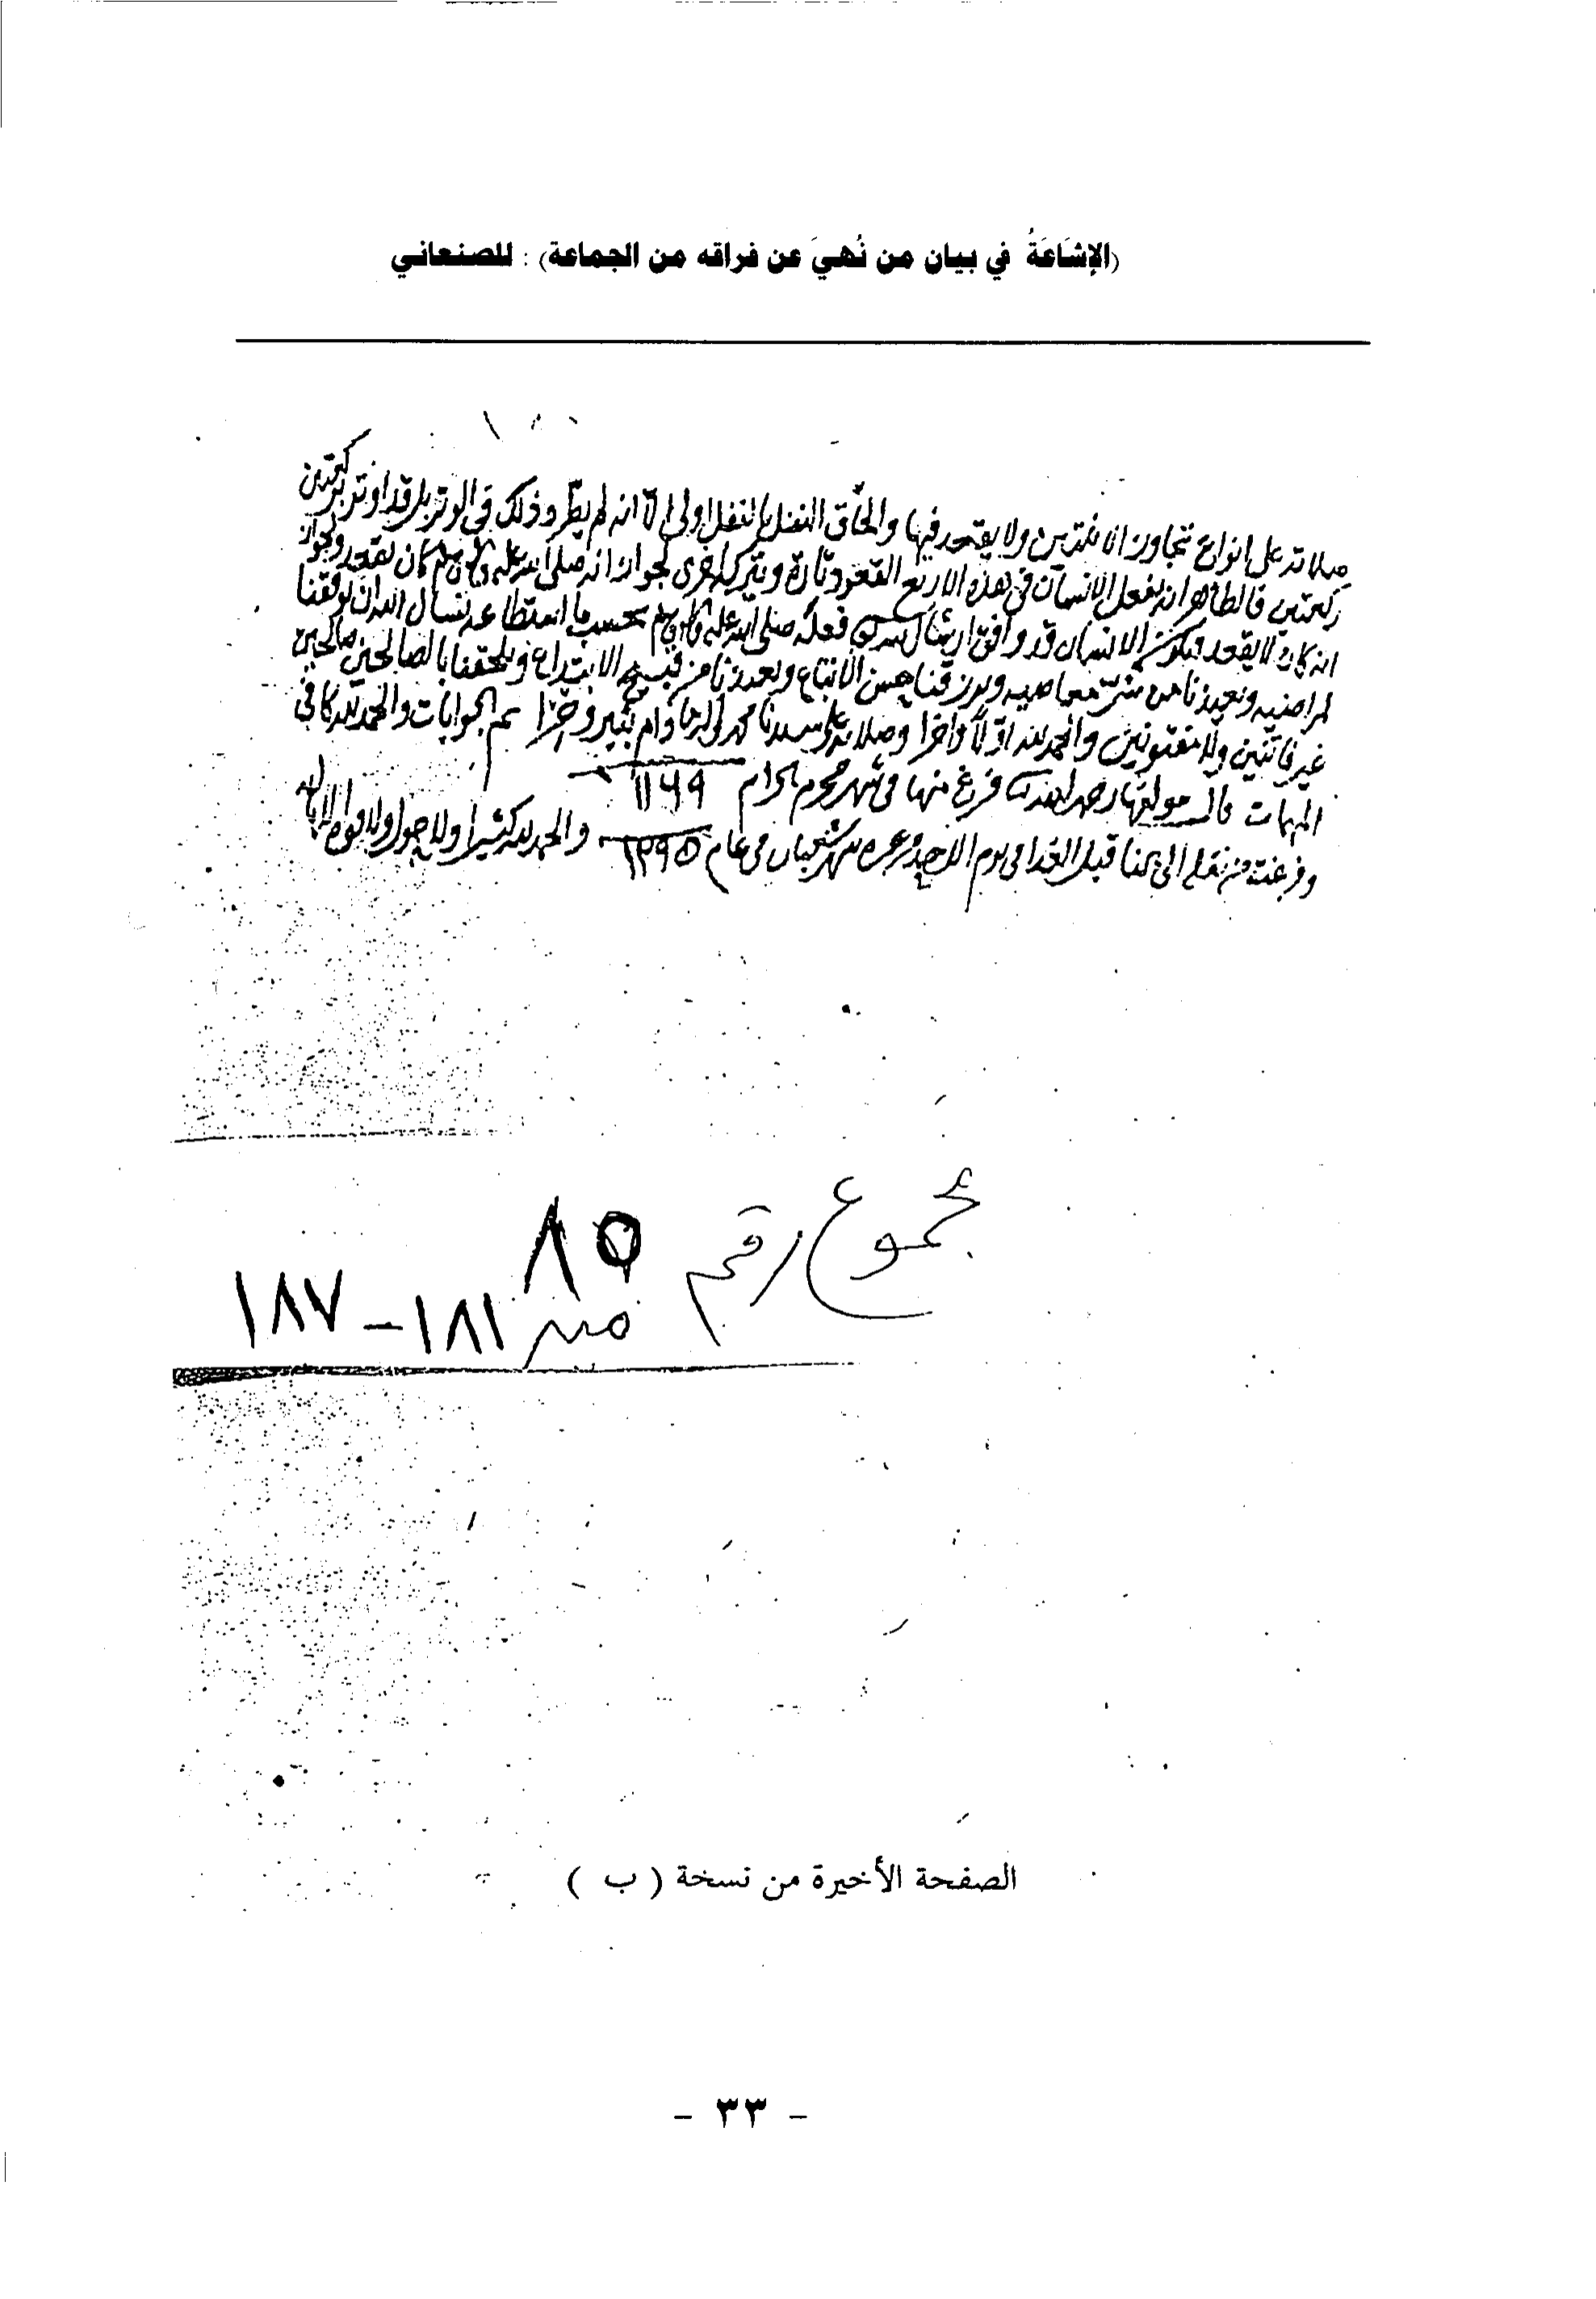 (الإشَاعَةُ في بيان من نُهيَ عن فراقه من الجماعة) : للصنعاني
صلاته على انواع تتجاوز الاثنتين ولا يقعد فيها والحاق النفل بالنفل اولى الا انه لم يطرد ذلك في الوتر بل قد اوتر بركعتين
ركعتين فالظاهر انه يفعل الانسان في هذه الاربع القعود تارة ويتركه اخرى لجواز انه صلى الله عليه وآله وسلم كان يقعد ولجواز
انه كان لا يقعد فيكون الانسان قد وافق فعله صلى الله عليه وآله وسلم بحسب ما استطاعه نسال الله ان يوفقنا
لمراضيه ويعيذنا من شر معاصيه ويرزقنا حسن الاتباع ويعيذنا من قبيح الابتداع ويلحقنا بالصالحين صالحين
غير فاتنين ولا مفتونين والحمد لله اولا واخرا وصلاته على سيدنا محمد تم الجوابات والحمد لله كافي
المهمات قال مولفها رحمه الله فرغ منها في شهر محرم الحرام ١١٦٩
وفرغت من نقله الى هنا قبل الغدا في يوم الاحد شهر شعبان في عام ١٣٩٥ والحمد لله كثيرا ولا حول ولا قوة الا بالله
مجموع رقم ٨٥
من ١٨١ - ١٨٧
الصفحة الأخيرة من نسخة ( ب )
- ٣٣ -